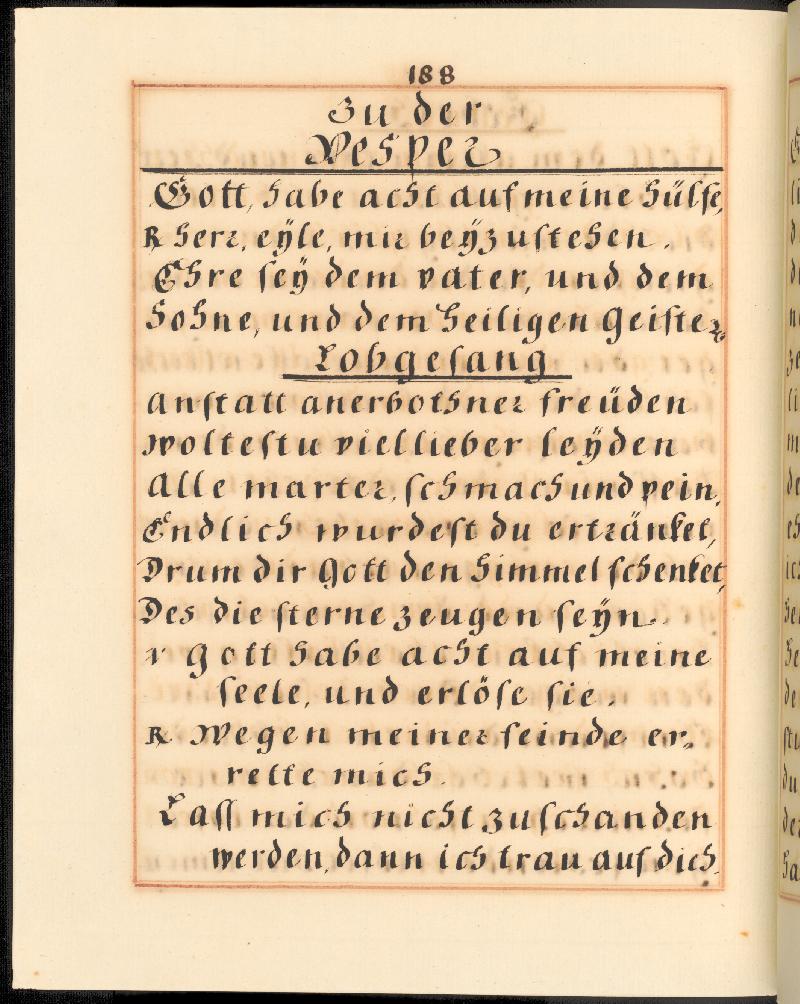 188
Zu der
Vesper
Gott, habe acht auf meine hülfe,
R Herr, eÿle, mir beÿzustehen.
Ehre seÿ dem vater, und dem
Sohne, und dem heiligen Geiste ꝛc
Lobgesang
Anstatt anerbothner freüden
Woltestu viellieber leÿden
Alle marter, schmach und pein,
Endlich wurdest du ertränket,
Drum dir Gott den himmel schenket,
Des die sterne zeugen seÿn.
v Gott habe acht auf meine
seele, und erlöse sie.
R Wegen meiner feinde er-
rette mich.
Lass mich nicht zuschanden
werden, dann ich trau auf dich.